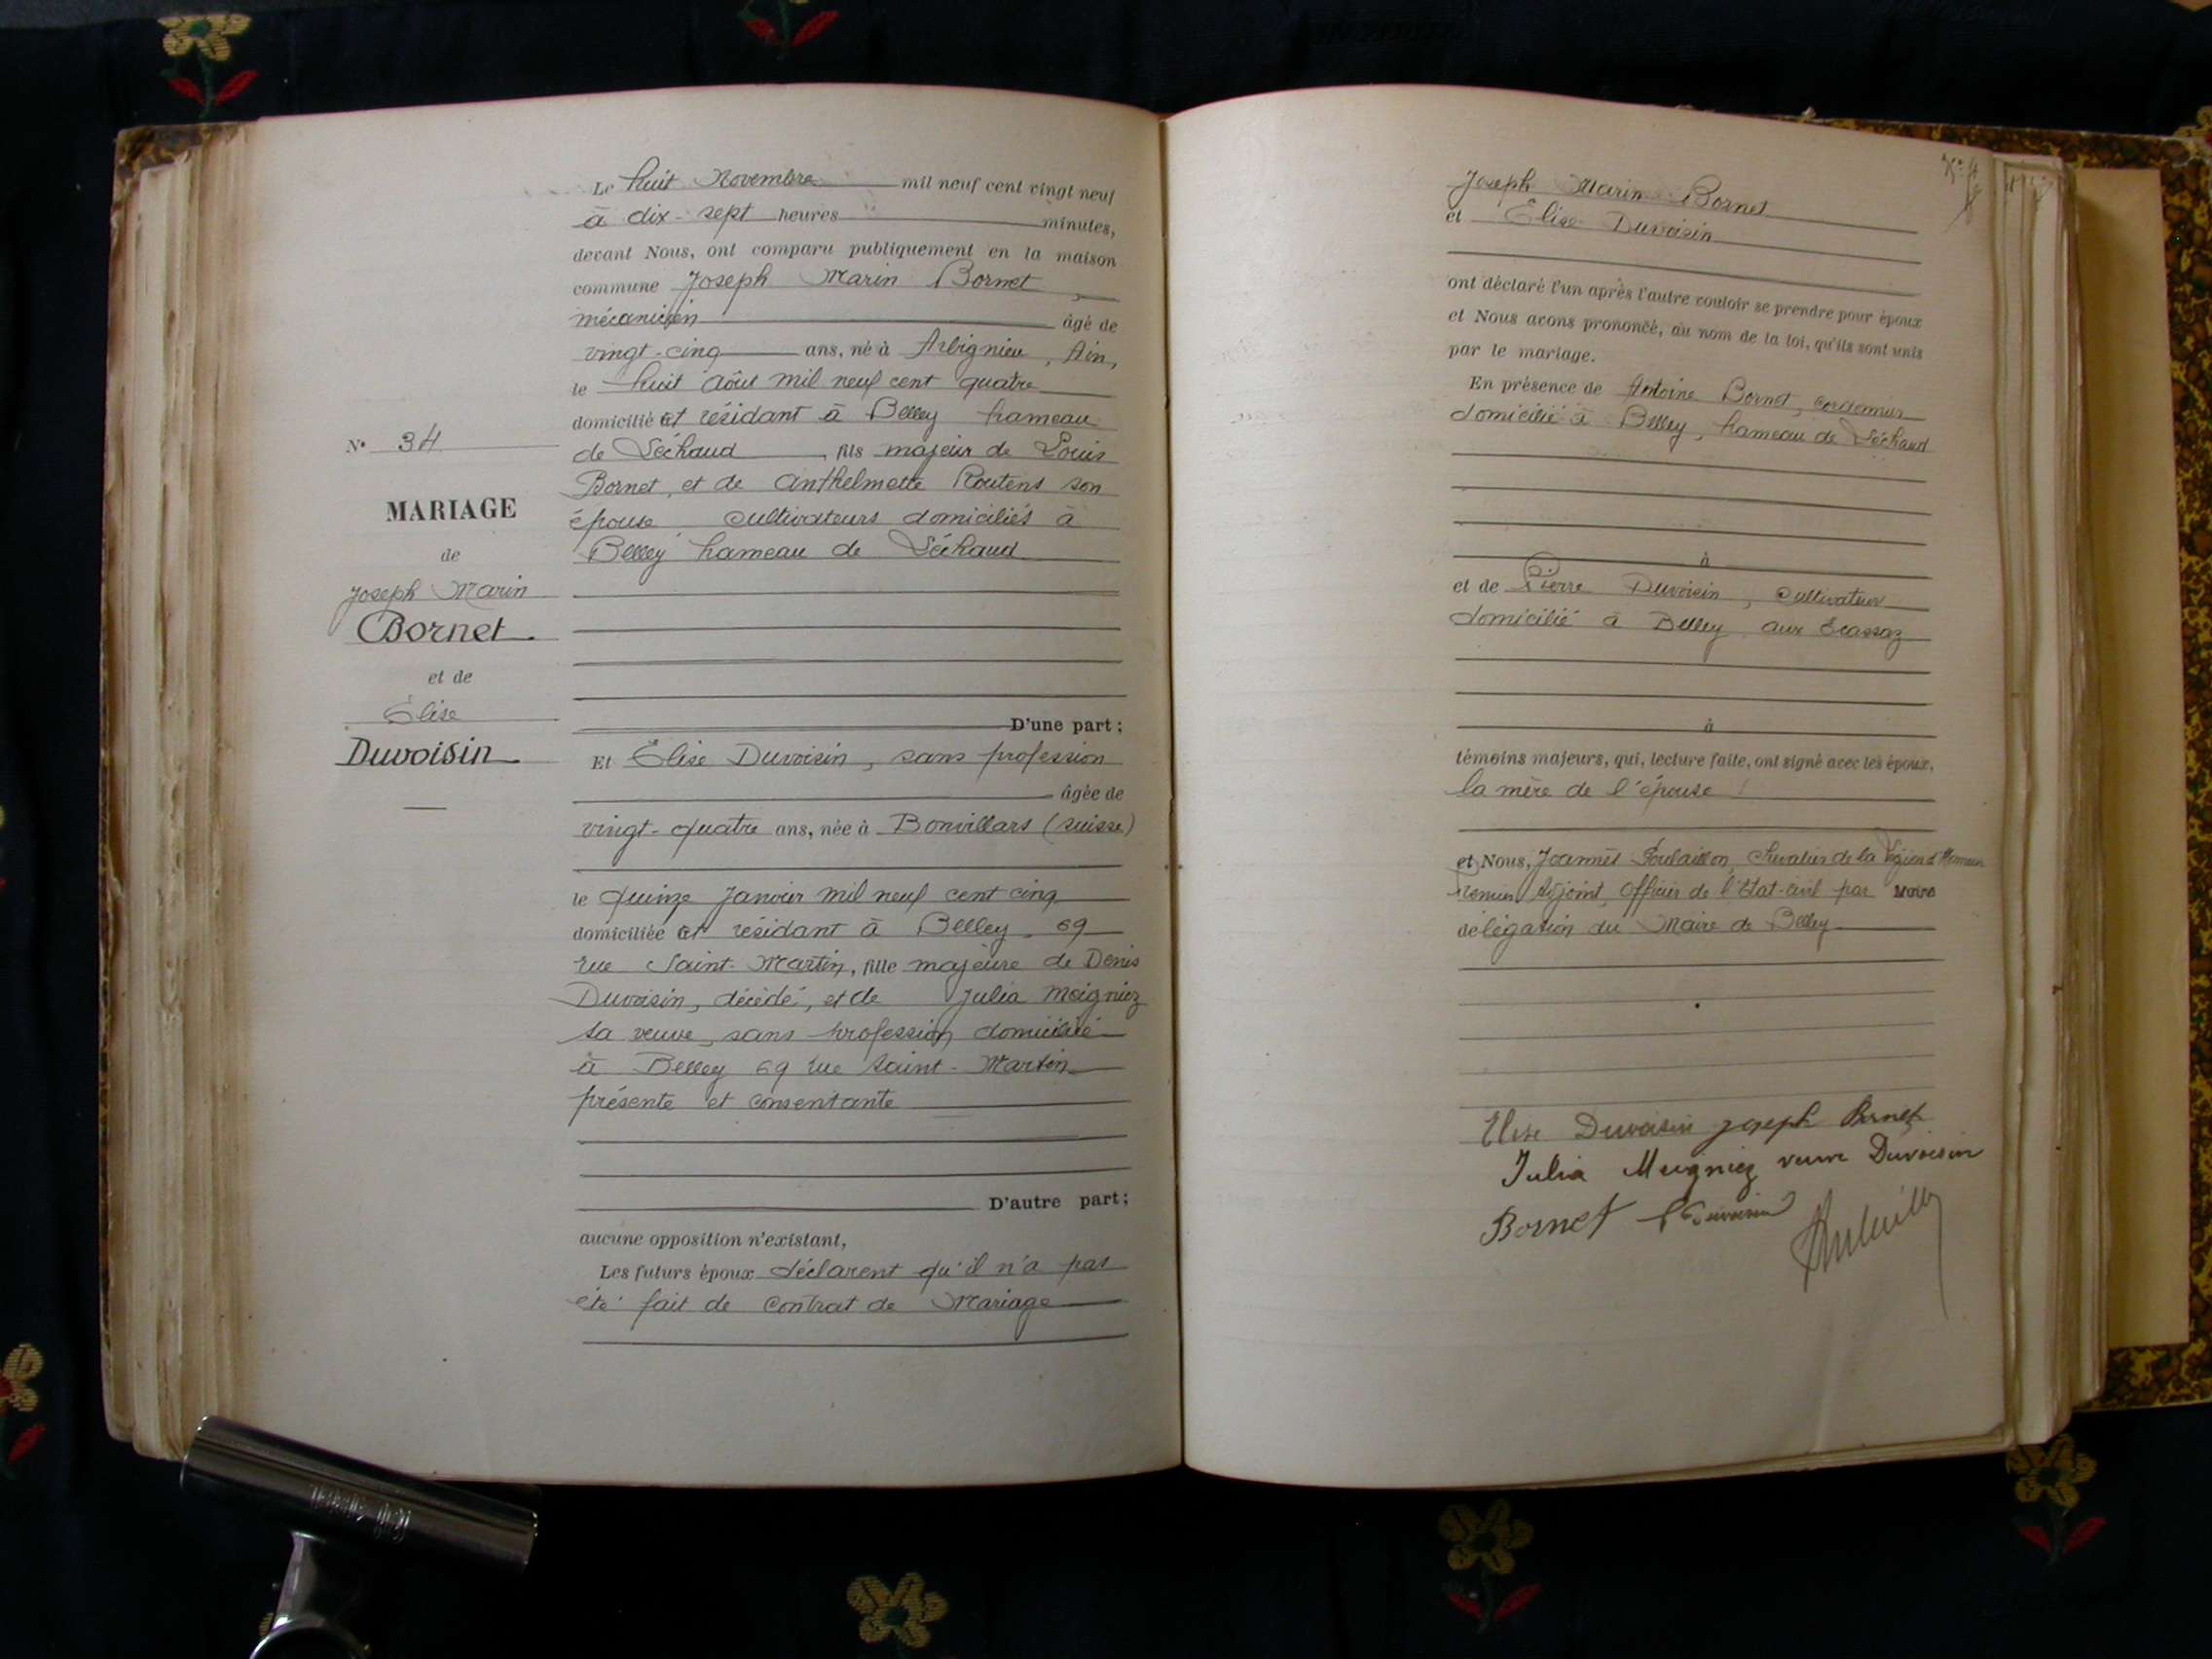 N° 34
MARIAGE
de
Joseph Marin
Bornet
et de
Élise
Duvoisin
Le huit Novembre mil neuf cent vingt neuf
à dix-sept heures minutes,
devant Nous, ont comparu publiquement en la maison
commune Joseph Marin Bornet,
mécanicien âgé de
vingt-cinq ans, né à Arbignieu, Ain,
le huit Août mil neuf cent quatre
domicilié et résidant à Belley hameau
de Séchaud, fils majeur de Louis
Bornet, et de Anthelmette Routens son
épouse cultivateurs domiciliés à
Belley hameau de Séchaud
D'une part;
Et Élise Duvoisin, sans profession
âgée de
vingt-quatre ans, née à Bonvillars (Suisse)
le quinze Janvier mil neuf cent cinq
domiciliée et résidant à Belley, 69
rue Saint-Martin, fille majeure de Denis
Duvoisin, décédé, et de Julia Meigniez
sa veuve, sans profession domiciliée
à Belley 69 rue Saint-Martin
présente et consentante
D'autre part;
aucune opposition n'existant,
Les futurs époux déclarent qu'il n'a pas
été fait de contrat de Mariage
Joseph Marin Bornet
et Élise Duvoisin
ont déclaré l'un après l'autre vouloir se prendre pour époux
et Nous avons prononcé, au nom de la loi, qu'ils sont unis
par le mariage.
En présence de Antoine Bornet, cordonnier
domicilié à Belley, hameau de Séchaud
à
et de Pierre Duvoisin, cultivateur
domicilié à Belley aux Écassaz
à
témoins majeurs, qui, lecture faite, ont signé avec les époux,
la mère de l'épouse
et Nous, Joannès Poulaillon, Chevalier de la Légion d'Honneur
Premier Adjoint, Officier de l'Etat-civil par Maire
délégation du Maire de Belley
Elise Duvoisin Joseph Bornet
Julia Meigniez veuve Duvoisin
Bornet P Duvoisin